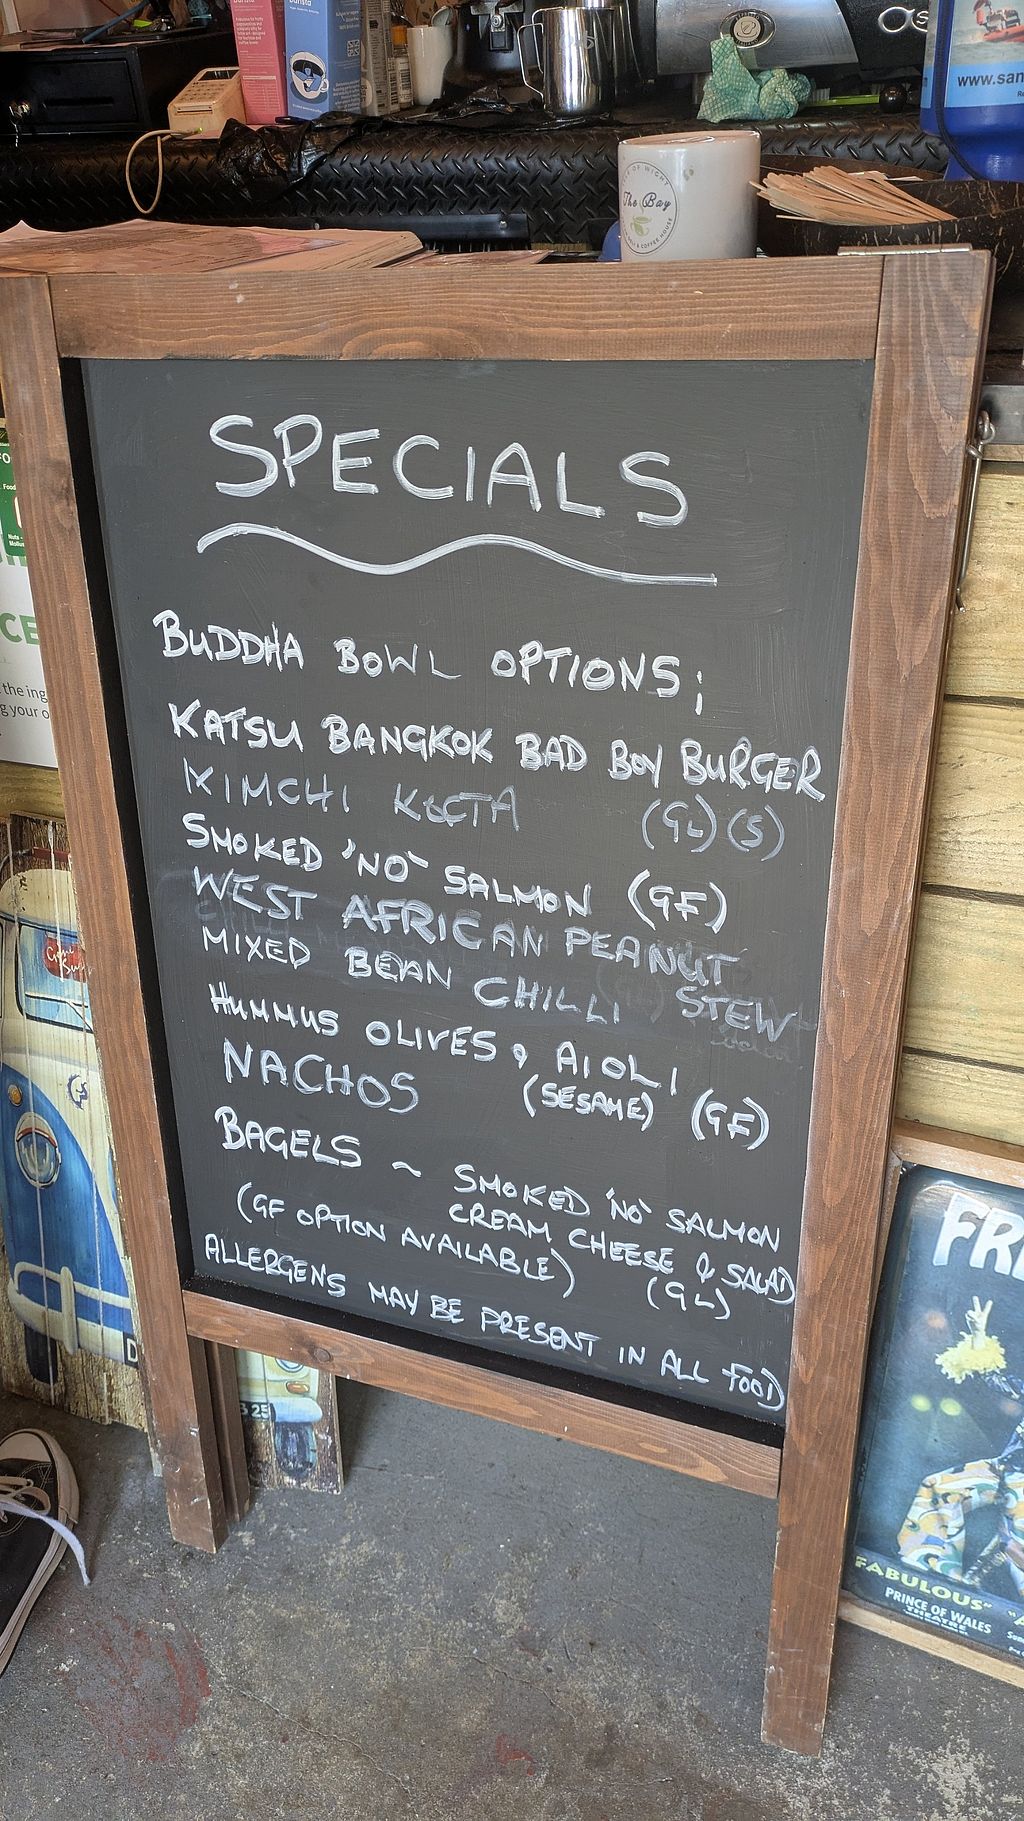 barista
www.san
OF WIGHT
The Bay
DELI & COFFEE HOUSE
SPECIALS
BUDDHA BOWL OPTIONS;
KATSU BANGKOK BAD BOY BURGER
KIMCHI (GL) (S)
SMOKED 'NO' SALMON (GF)
WEST AFRICAN PEANUT
STEW
MIXED BEAN CHILLI
HUMMUS OLIVES & AIOLI
NACHOS (SESAME) (GF)
BAGELS ~ SMOKED 'NO' SALMON
CREAM CHEESE & SALAD
(GF OPTION AVAILABLE) (GL)
ALLERGENS MAY BE PRESENT IN ALL FOOD
CE
the ing
g your o
FR
FABULOUS"
PRINCE OF WALES
THEATRE